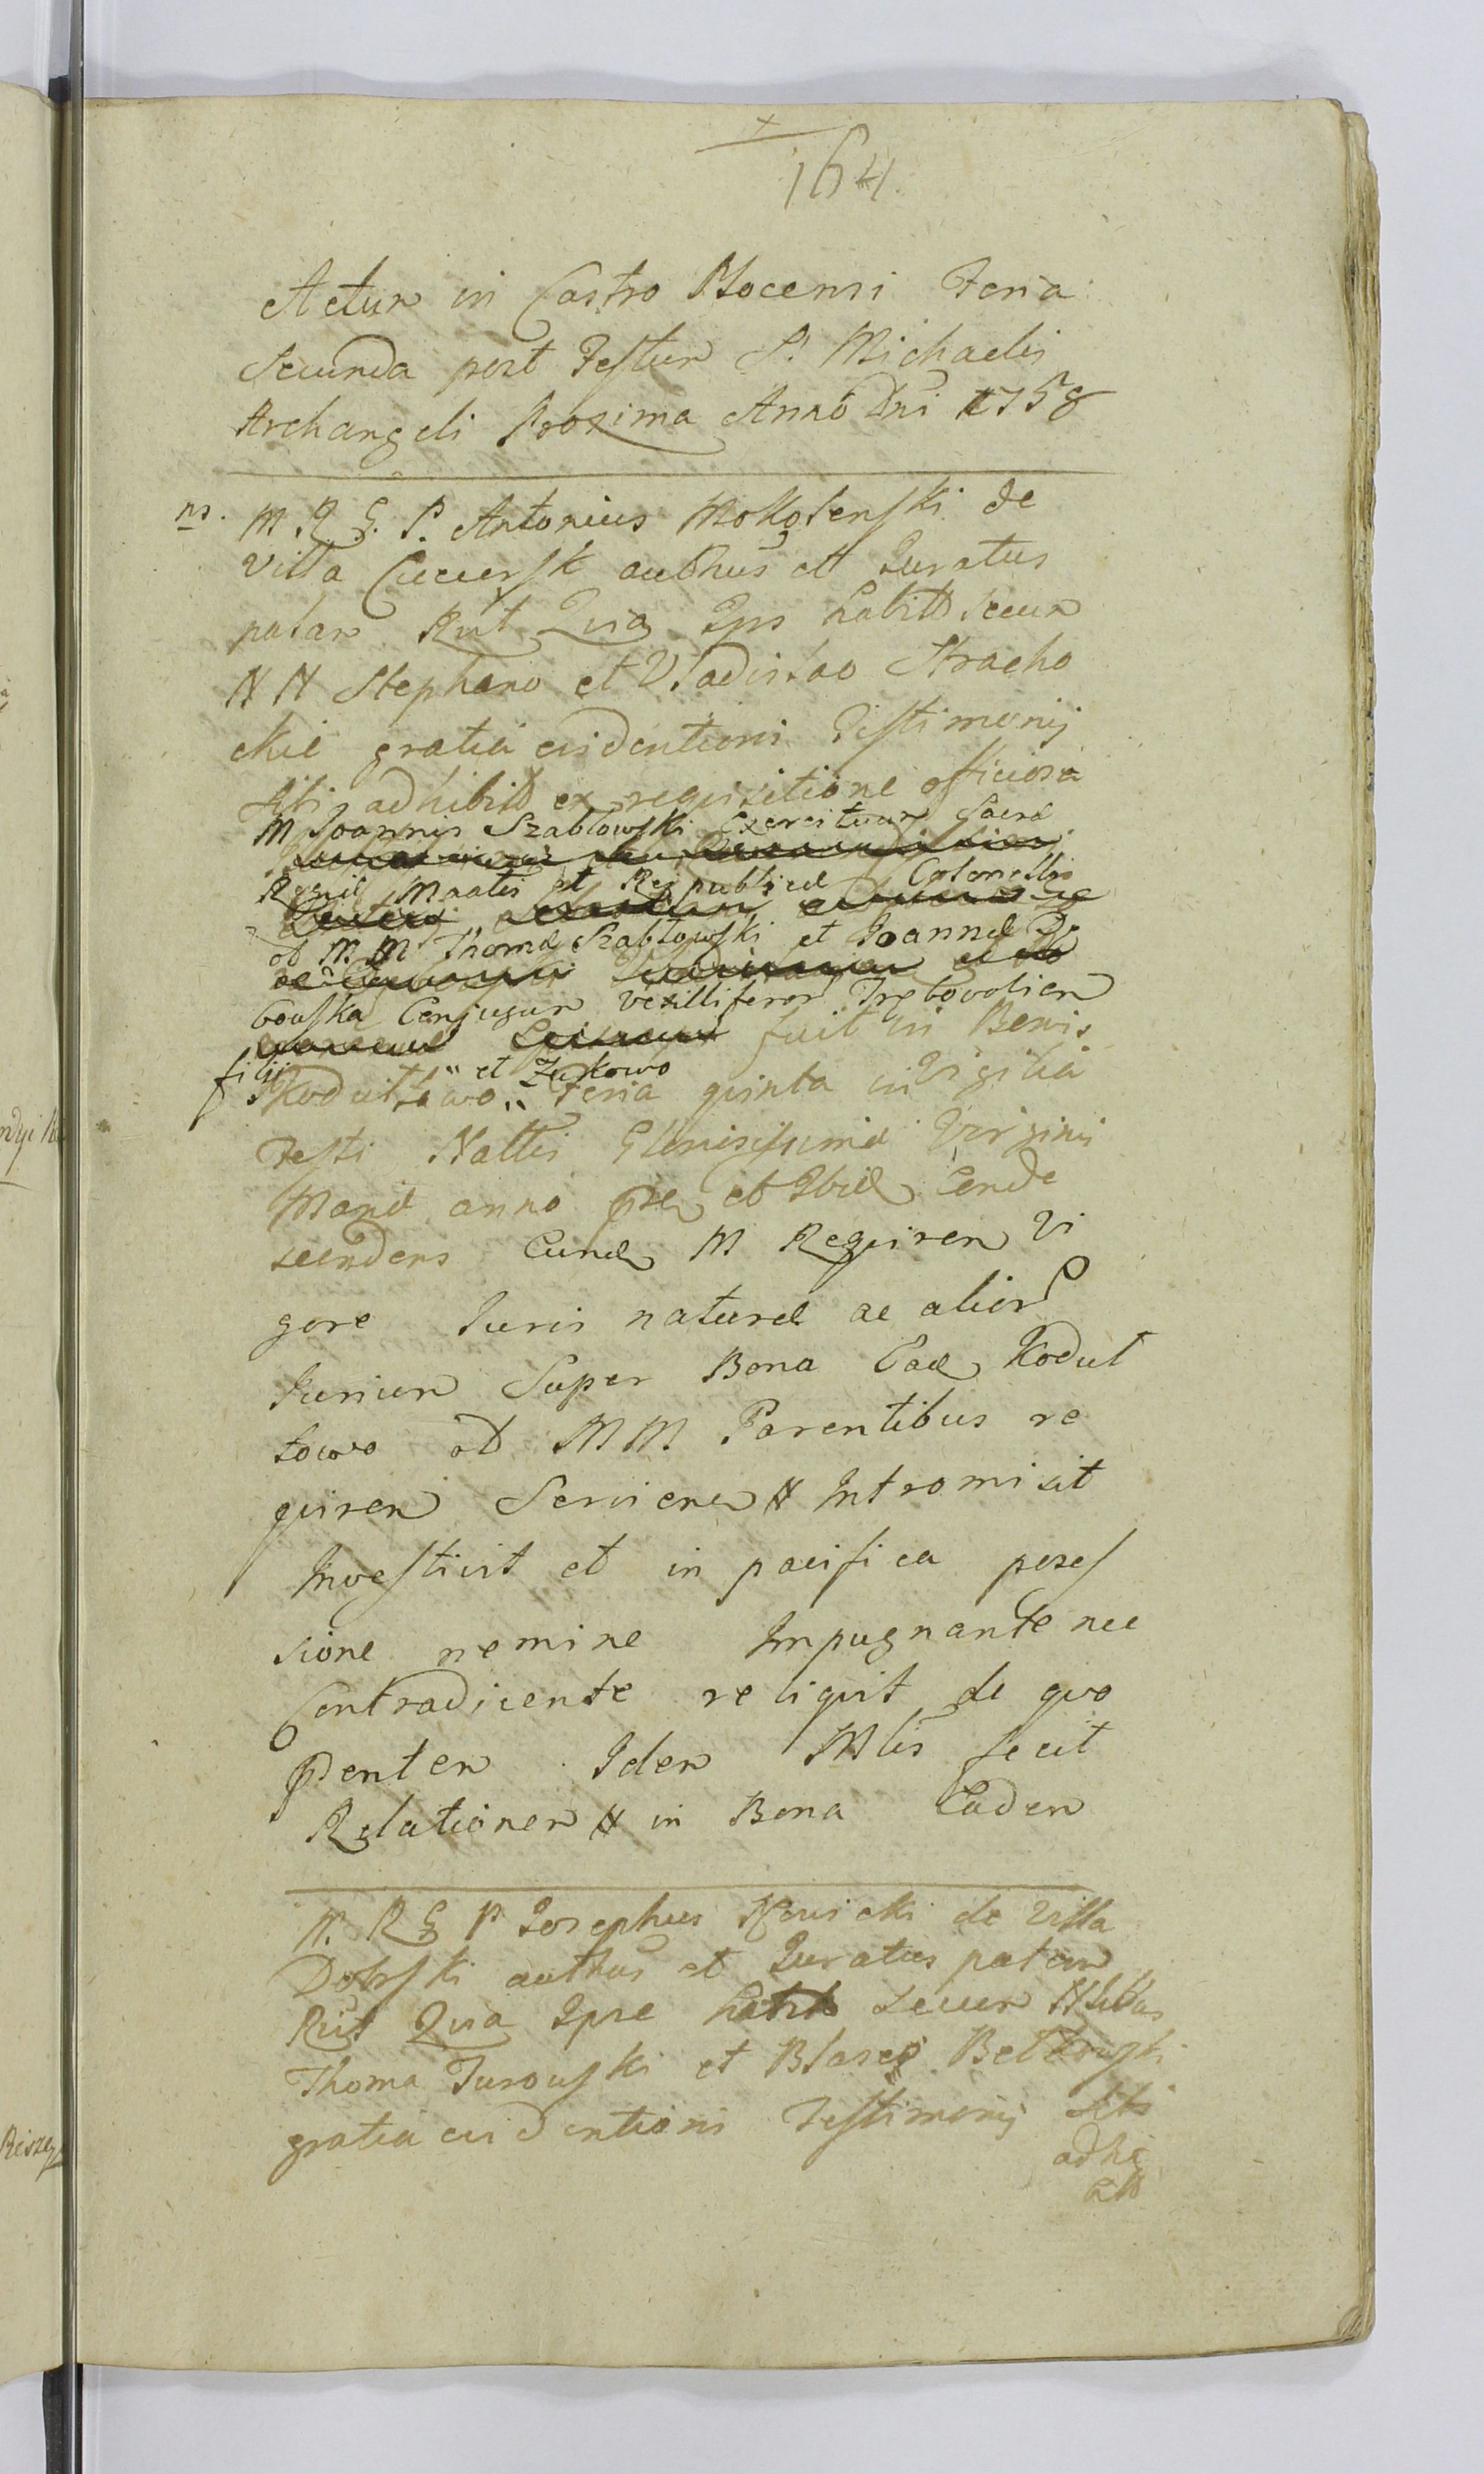 164.
Actum in Castro Plocensi Feria
Secunda post Festum S. Michaelis
Archangeli Proxima Anno Dni 1758
ns. M. R. G. P. Antonius Mokolenski de
Villa Cieciersk authus et Juratus
palam Rnt Quia Ips habitt secum
NN Stephano et Vladislao Stracho
ckie gratia evidentioris Testimonij
sibi adhibitt ex requisitione officiosa
M Joannis Szablowski Exercituum Sacrae
Regiae Maatis et Reipublicae Colonellis
ad M. M Thomae Szablowski et Joannae De
bouska Conjugum Vexilliferor Trebovolien
filij fuit in Bonis
Kodutlowo " et Zukowo " Feria quinta in Vigilia
Festi Nattis Gloriosissimae Virginis
Mariae anno pse et Ibid Conde
scendens Cund M Requiren Vi
gore Juris naturae ac alior
Jurium Super Bona Ead Kodut
towo ad MM Parentibus re
quiren Servien N Intromisit
Investivit et in pacifica poses
sione nemine Impugnante nec
Contradicente reliquit de quo
psenten Idem Mlis fecit
Relationem N in Bona Eadem
M. R G P Josephus Nowicki de Villa
Dobrski authus et Juratus palam
Rnt Quia Ipse habitt secum Nlibus
Thoma Turouski et Blaseo
gratia evidentioris Testimonij sibi
adhi
bitt